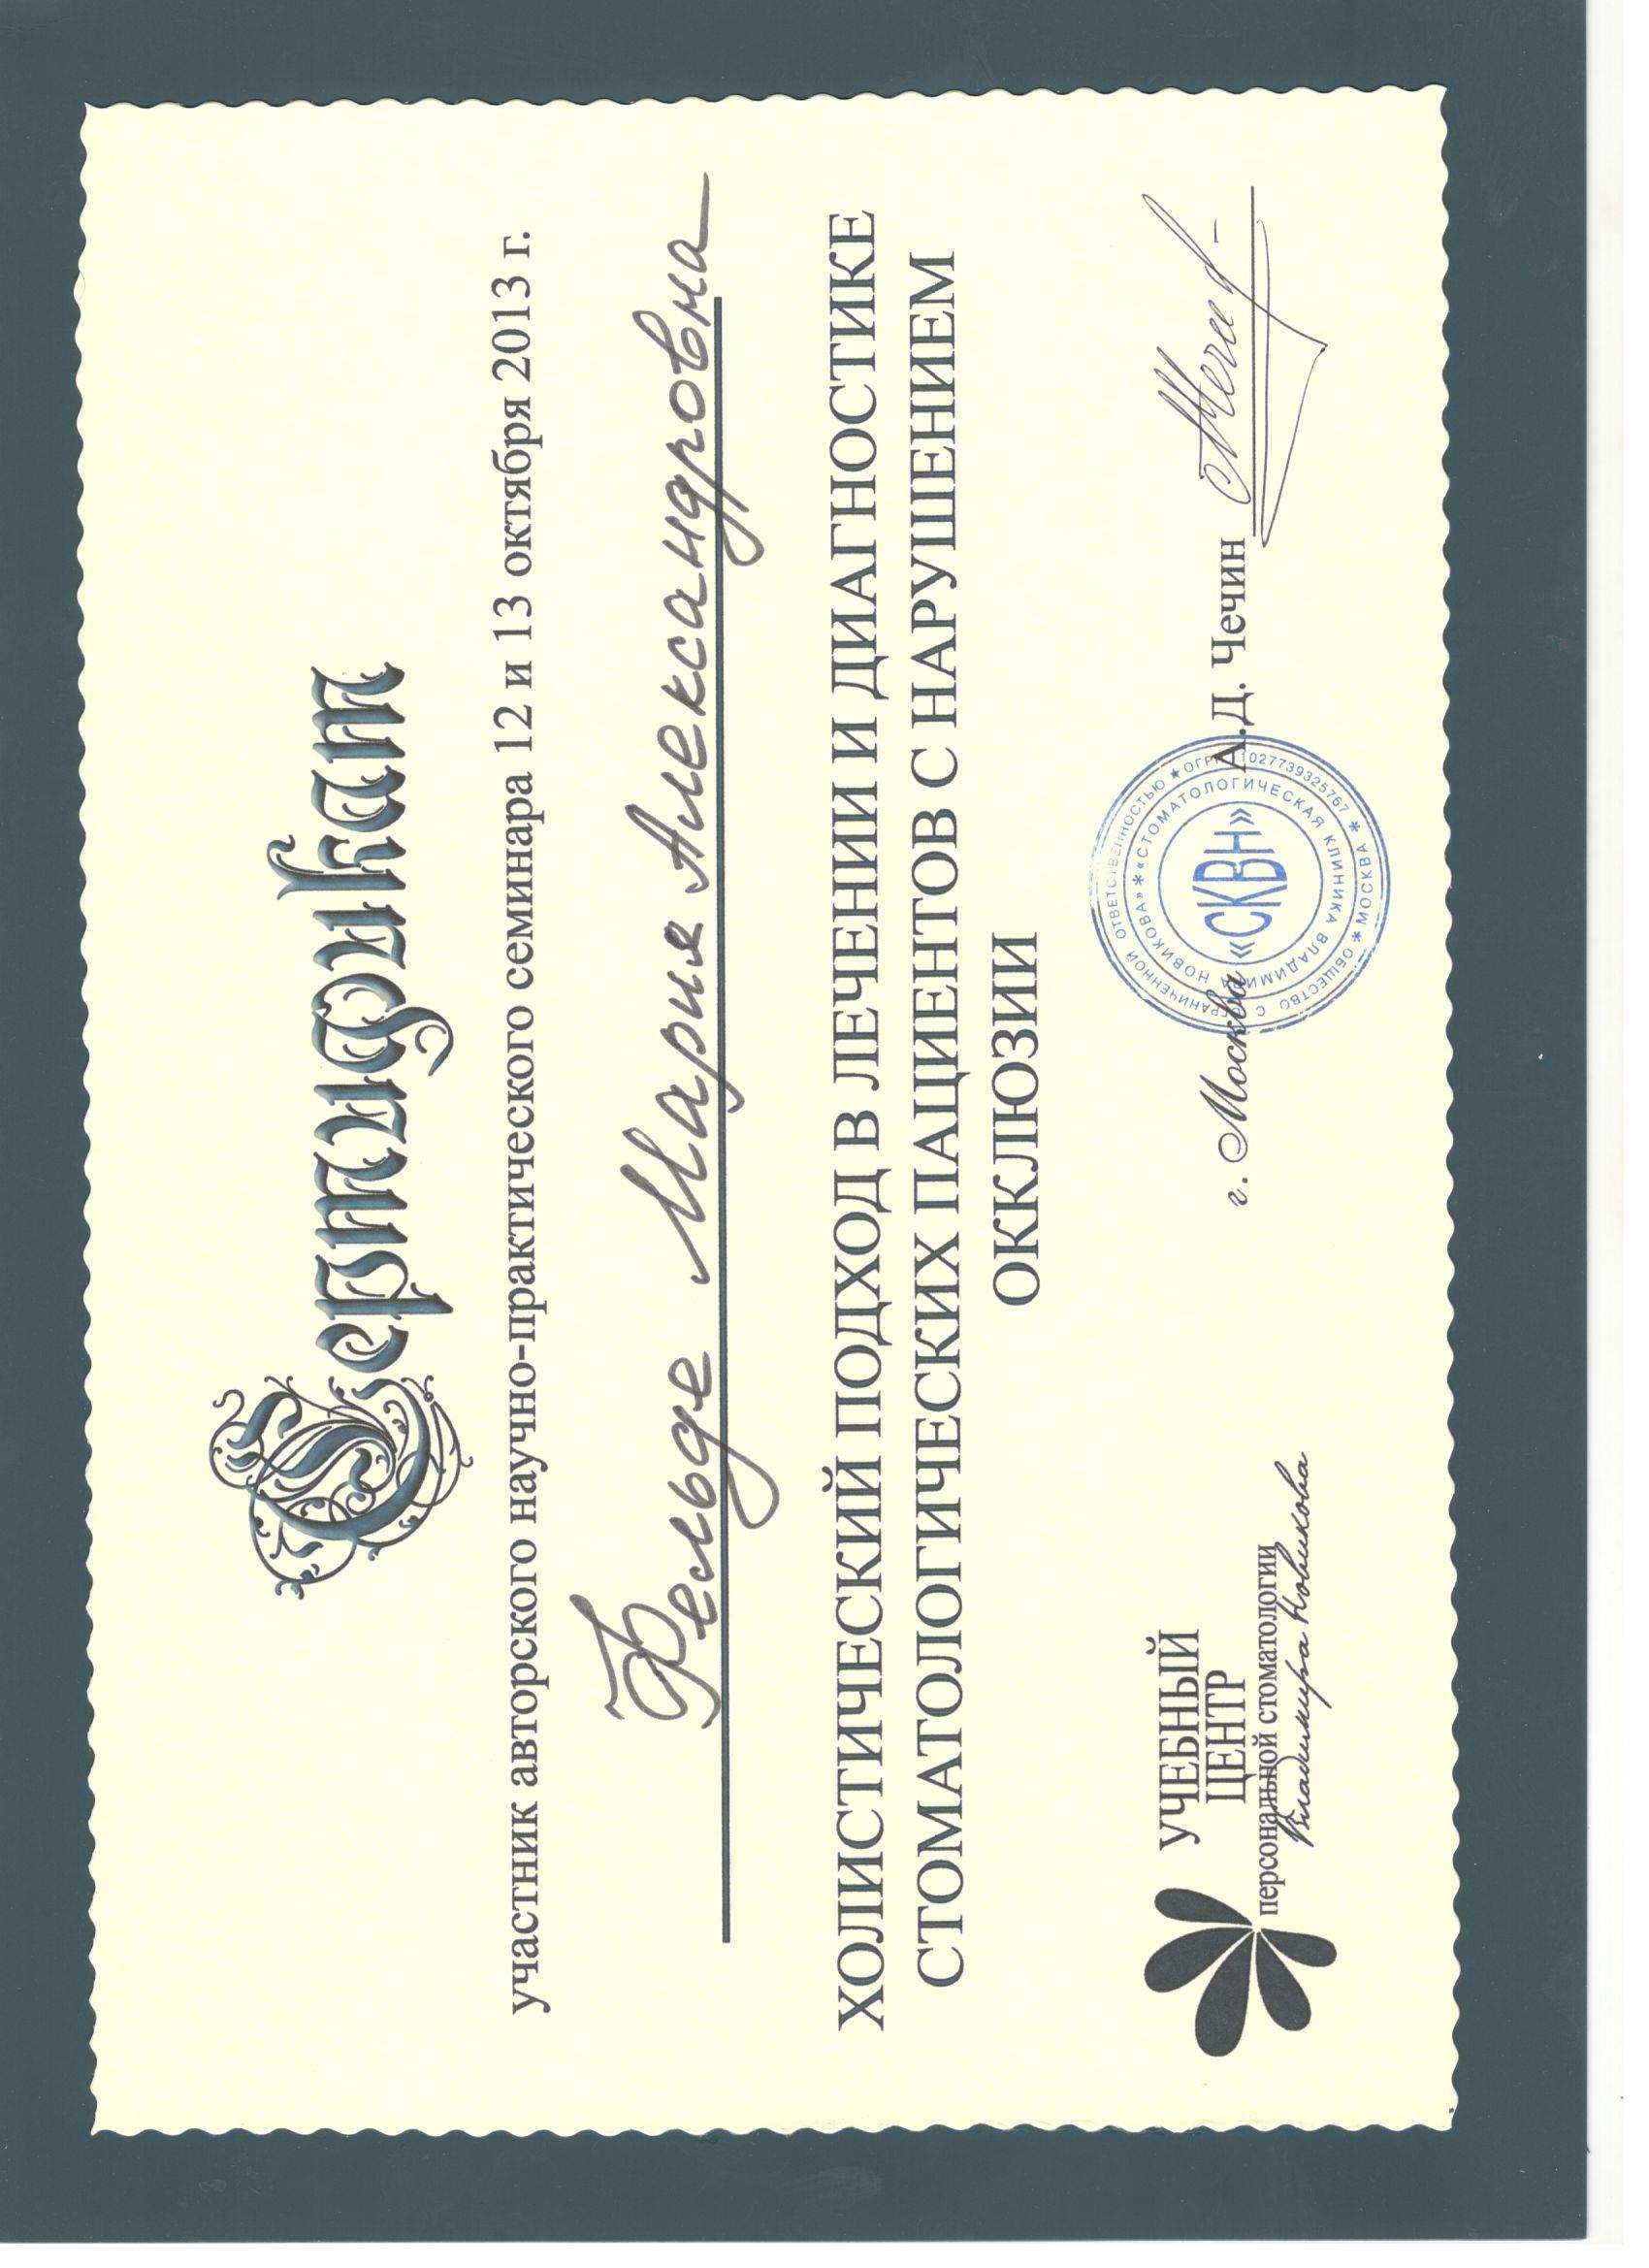 Сертификат
участник авторского научно-практического семинара 12 и 13 октября 2013 г.
Фельде Мария Александровна
ХОЛИСТИЧЕСКИЙ ПОДХОД В ЛЕЧЕНИИ И ДИАГНОСТИКЕ
СТОМАТОЛОГИЧЕСКИХ ПАЦИЕНТОВ С НАРУШЕНИЕМ
ОККЛЮЗИИ
УЧЕБНЫЙ
ЦЕНТР
персональной стоматологии
Владимира Новикова
г. Москва
А.Д. Чечин
ОБЩЕСТВО С ОГРАНИЧЕННОЙ ОТВЕТСТВЕННОСТЬЮ ★ ОГРН 1027739325767 * МОСКВА *
«СТОМАТОЛОГИЧЕСКАЯ КЛИНИКА ВЛАДИМИРА НОВИКОВА» *
«СКВН»